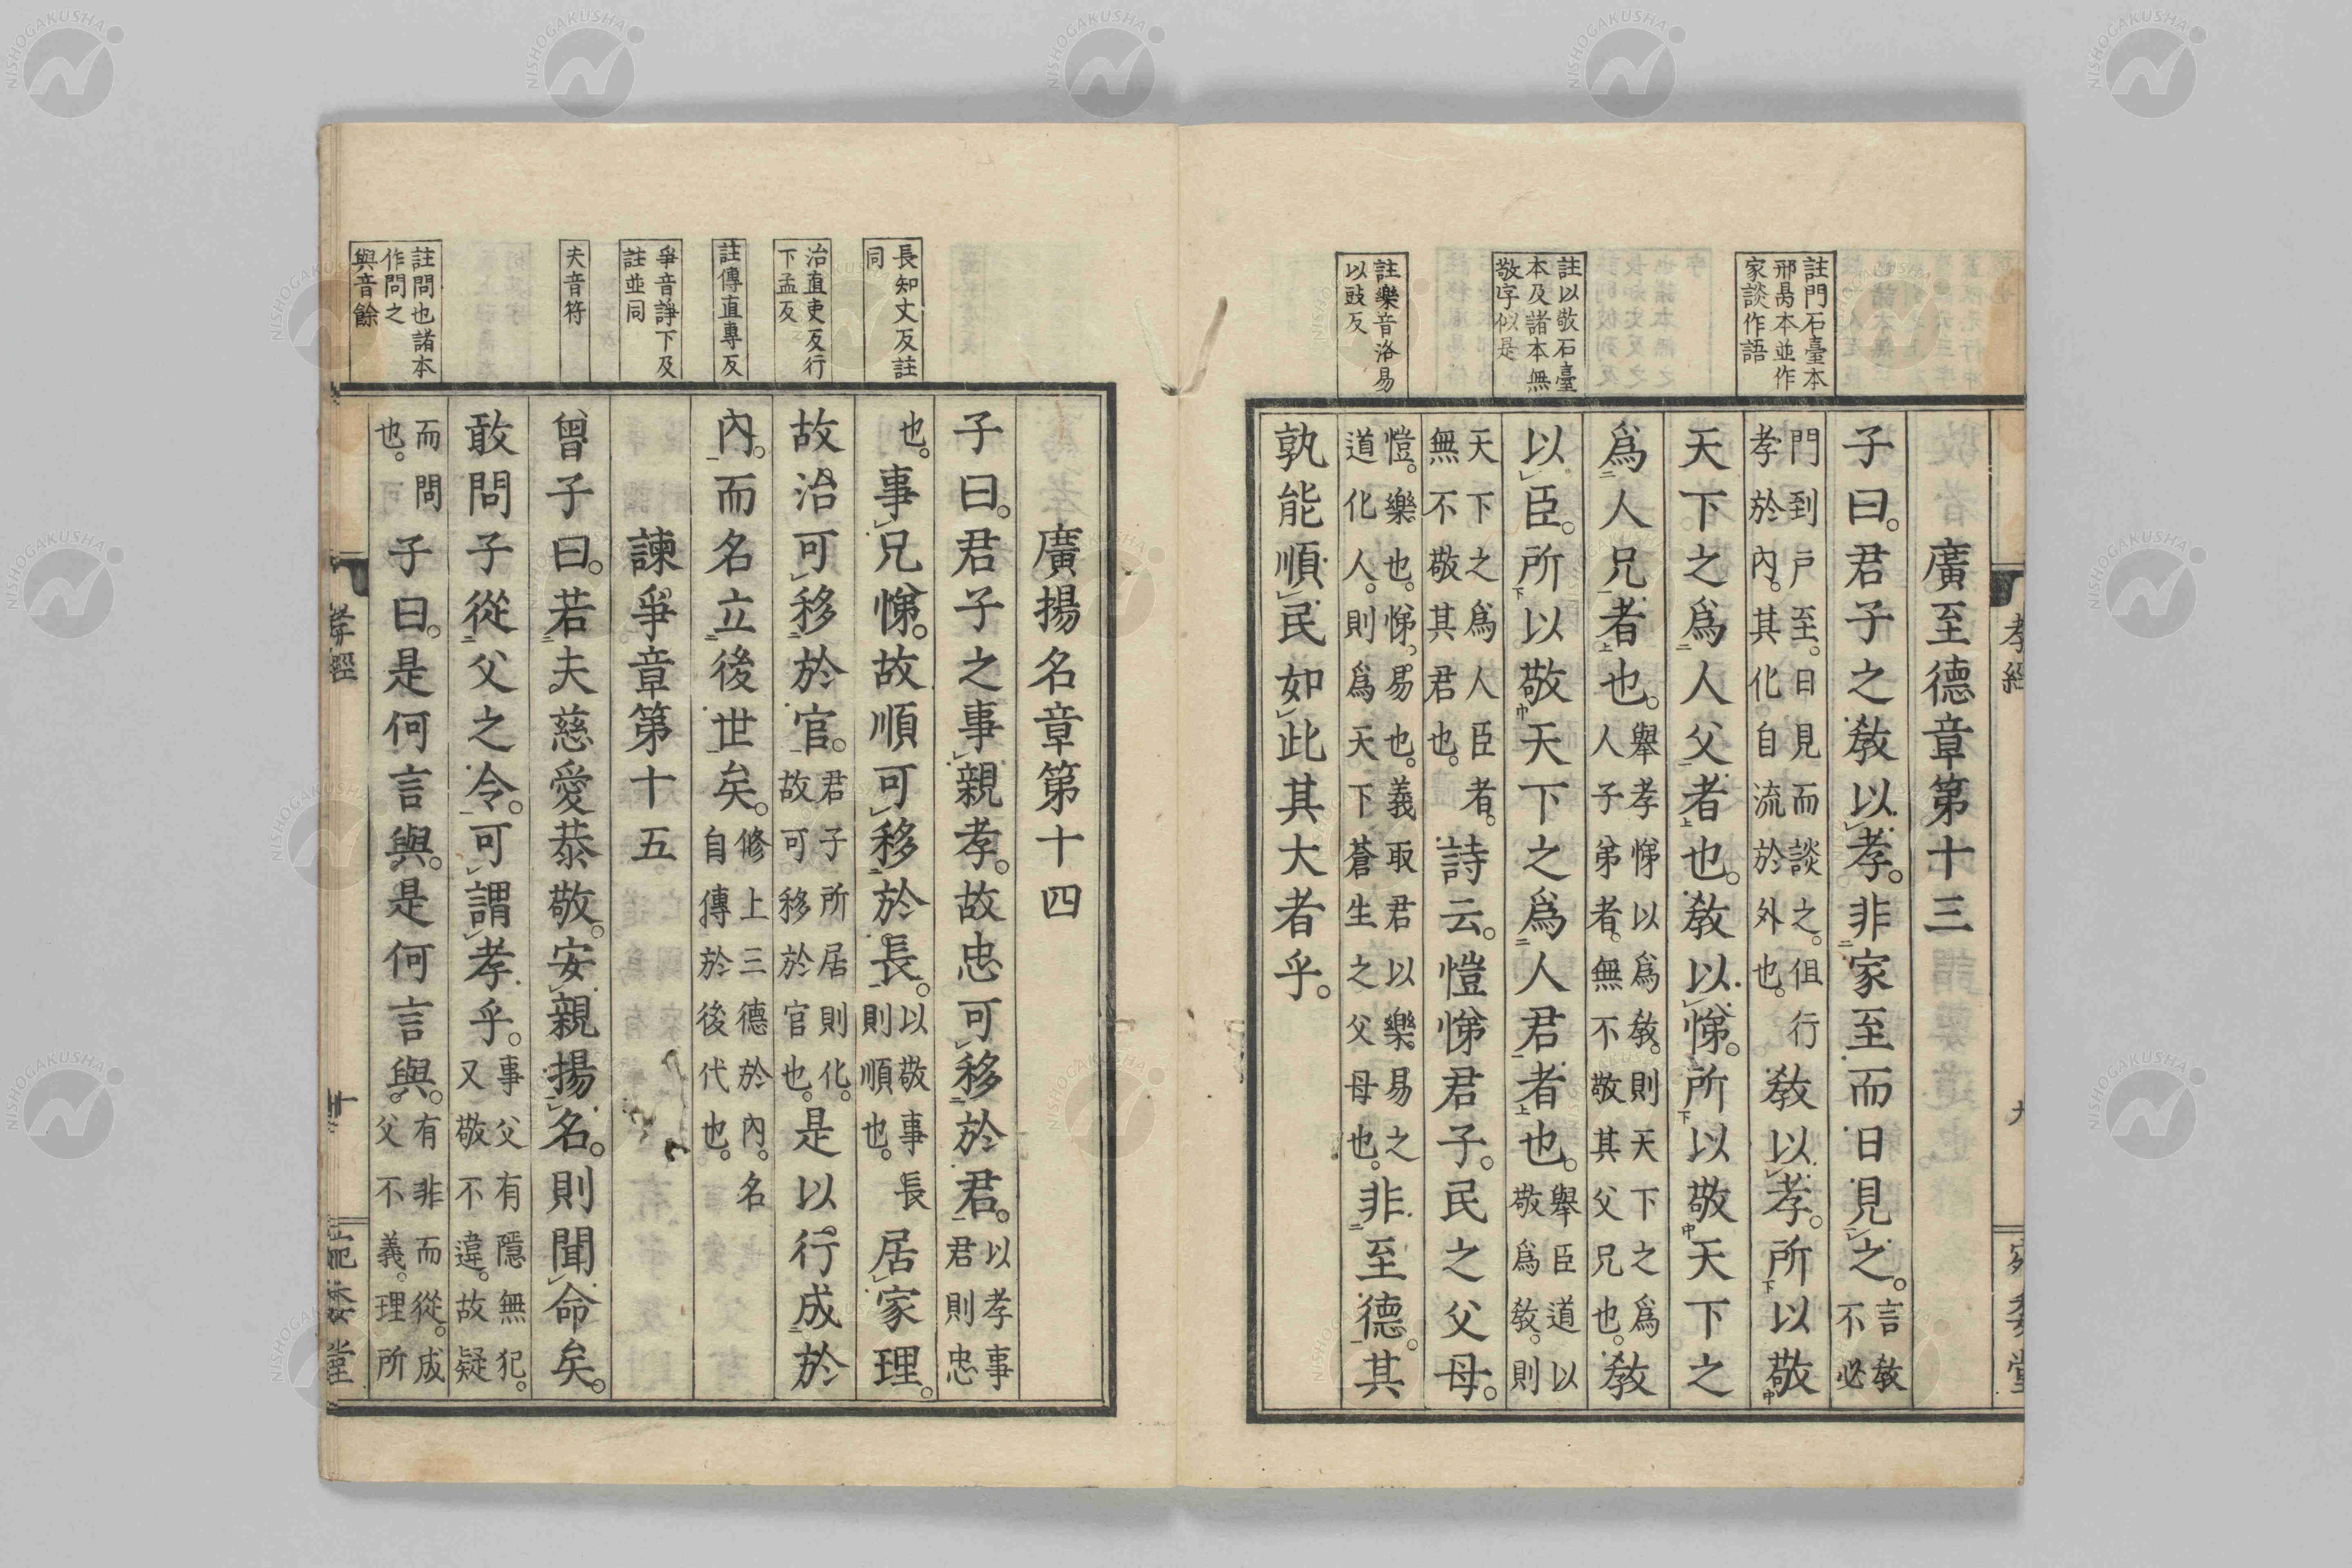 註門石臺本
邢昺本並作
家談作語
註以敬石臺
本及諸本無
敬字似是
註樂音洛易
以豉反
孝經
九
廣至德章第十三
子曰。君子之教以孝。非家至而日見之。言教不必
門到戶至。日見而談之。但行孝於內。其化自流於外也。教以孝。所以敬
天下之爲人父者也。教以悌。所以敬天下之
爲人兄者也。舉孝悌以爲教。則天下之爲人子弟者。無不敬其父兄也。教
以臣。所以敬天下之爲人君者也。舉臣道以爲教。則
天下之爲人臣者。無不敬其君也。詩云。愷悌君子。民之父母。
愷。樂也。悌。易也。義取君以樂易之道化人。則爲天下蒼生之父母也。非至德。其
孰能順民如此其大者乎。
長知丈反註
同
治直吏反行
下孟反
註傳直專反
爭音諍下及
註並同
夫音符
註問也諸本
作問之
與音餘
廣揚名章第十四
子曰。君子之事親孝。故忠可移於君。以孝事君則忠
也。事兄悌。故順可移於長。以敬事長則順也。居家理。
故治可移於官。君子所居則化。故可移於官也。是以行成於
內。而名立後世矣。修上三德於內。名自傳於後代也。
諫爭章第十五
曾子曰。若夫慈愛恭敬。安親揚名。則聞命矣。
敢問子從父之令。可謂孝乎。事父有隱無犯。又敬不違。故疑
而問也。子曰。是何言與。是何言與。有非而從。成父不義。理所
孝經
十